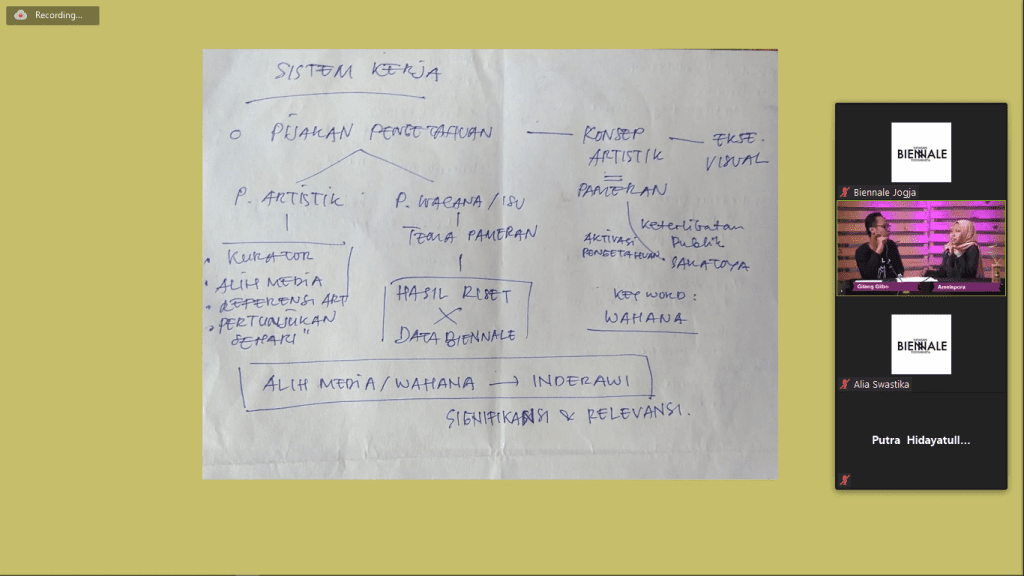 Recording...
SISTEM KERJA
PIJAKAN PENGETAHUAN
KONSEP ARTISTIK
EKSE. VISUAL
PAMERAN
P. ARTISTIK
P. WACANA / ISU
TEMA PAMERAN
Keterlibatan
Publik
AKTIVASI
PENGETAHUAN
SAKATOYA
KURATOR
ALIH MEDIA
REFERENSI ART
PERTUNJUKAN
SEHARI"
HASIL RISET
X
DATA BIENNALE
KEY WORD :
WAHANA
ALIH MEDIA / WAHANA → INDERAWI
SIGNIFIKANSI & RELEVANSI.
BIENNALE
Biennale Jogja
Gilang Gibo
BIENNALE
Alia Swastika
Putra Hidayatull...